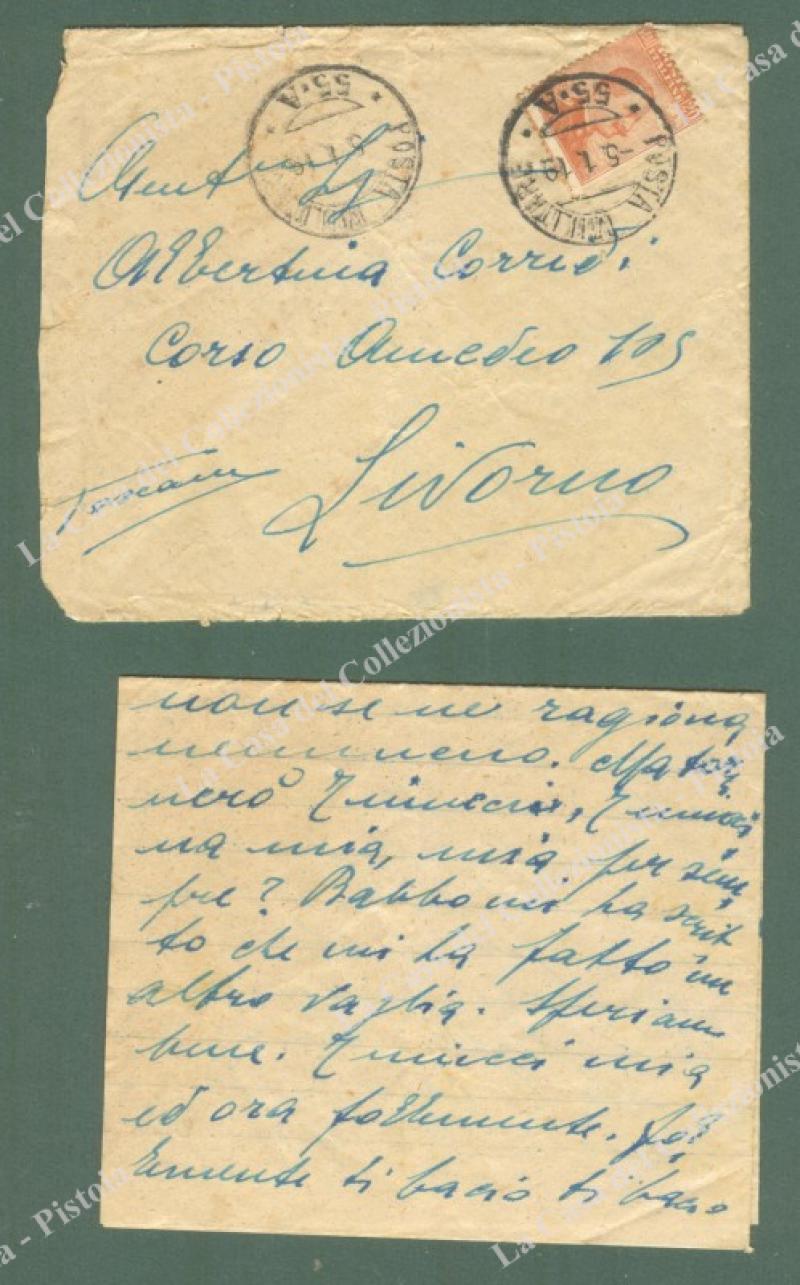 55·A
POSTA MILITARE
-5.1.19
55·A
POSTA MILITARE
Albertina Corridi
Corso Amedeo 105
Livorno
Toscana
non se ne ragiona
nemmeno. Ma tor
nerò
na mia, mia per sem
pre? Babbo mi ha scrit
to che mi ha fatto un
altro vaglia. Speriamo
bene. mia
ed ora follemente. fol
lemente ti bacio ti bacio
La Casa del Collezionista - Pistoia